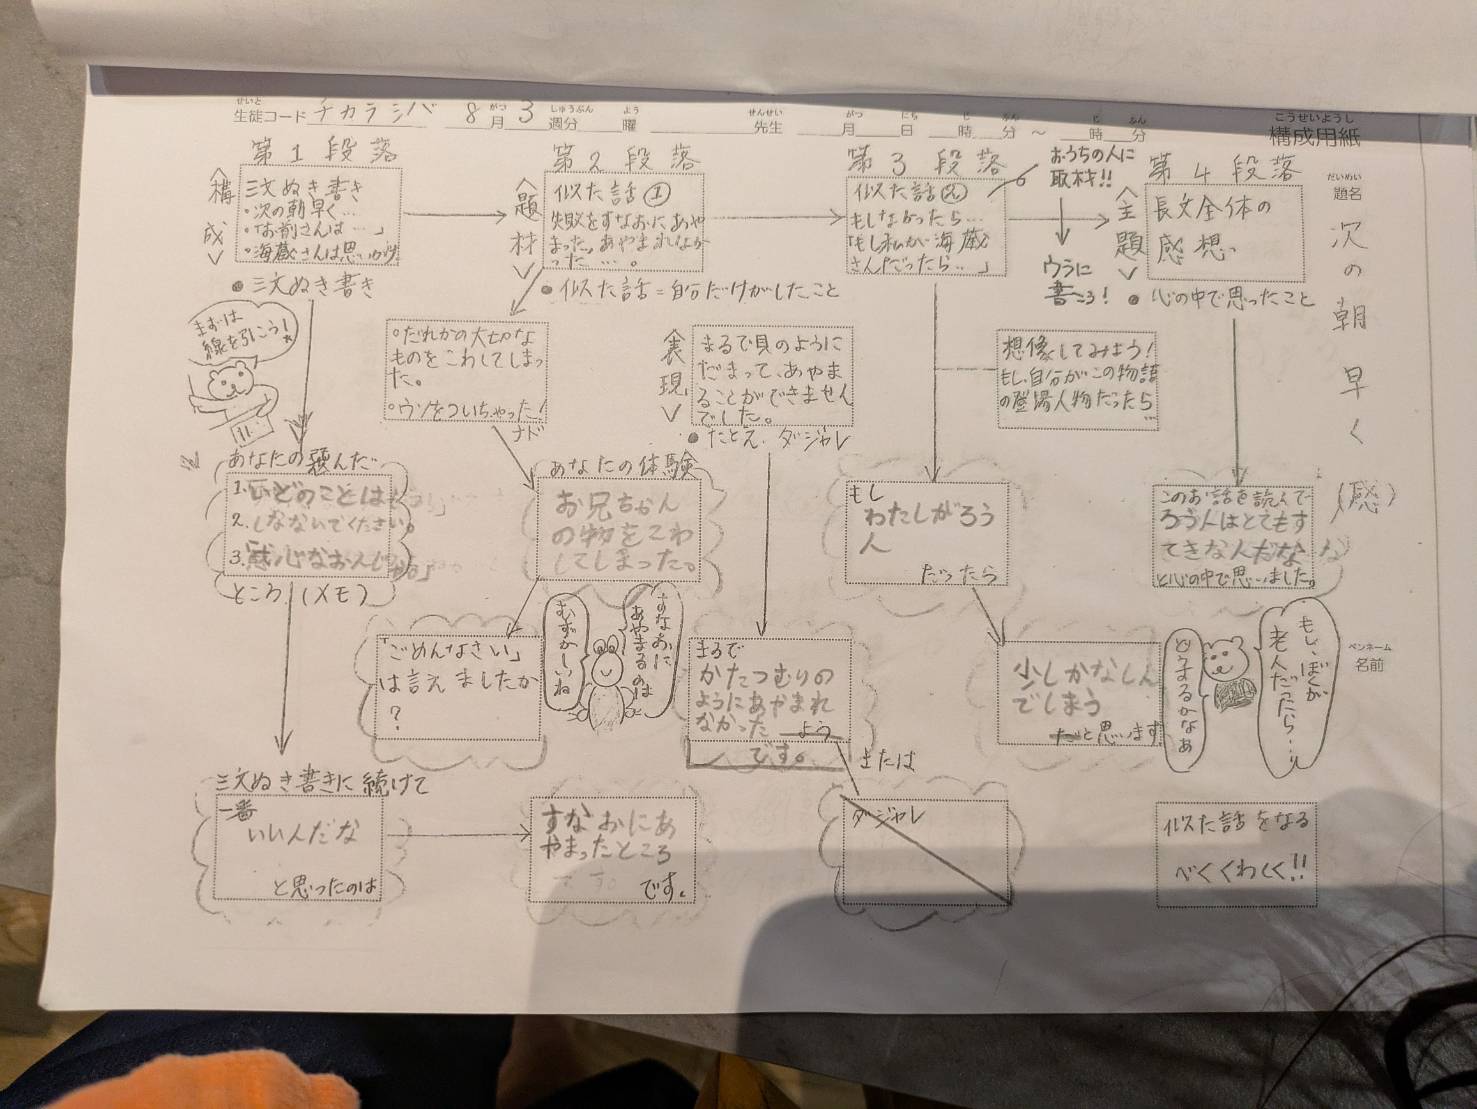 生徒コード チカラシバ 8月3週分 曜 先生 月 日 時 分 ～ 時 分
構成用紙
題名
次の朝早く
(感)
ペンネーム
名前
第1段落
〈構成〉
三文ぬき書き
・次の朝早く…
・「お前さんは…」
・海蔵さんは思いがけ
●三文ぬき書き
まずは
線を引こう!
あなたの選んだ
1.
2.しなないでください。
3.
ところ (メモ)
三文ぬき書きに続けて
一番
いいんだな
と思ったのは
すなおにあ
やまったところ
です。
第2段落
〈題材〉
似た話①
失敗をすなおにあや
まった。あやまれなか
った…。
●似た話=自分だけがしたこと
○だれかの大切な
ものをこわしてしまっ
た。
○ウソをついちゃった!
ナド
〈表現〉
まるで貝のように
だまって、あやま
ることができません
でした。
●たとえ・ダジャレ
あなたの体験
お兄ちゃん
の物をこわ
してしまった。
「ごめんなさい」
は言えましたか
?
すなおに
あやまるのは
むずかしいね
まるで
かたつむりの
ようにあやまれ
なかった よう
です。
または
ダジャレ
第3段落
似た話②
もしなかったら…
「もし私が海蔵
さんだったら…」
おうちの人に
取材!!
ウラに
書こう!
想像してみよう!
もし、自分がこの物語
の登場人物だったら
…
もし
わたしがろう
人
だったら
少しかなしん
でしまう
だと思います。
第4段落
〈主題〉
長文全体の
感想。
●心の中で思ったこと
このお話を読んで
ろう人はとてもす
てきな人だな
と心の中で思いました。
もし、ぼくが
老人だったら…
どうするかなあ
似た話をなる
べくくわしく!!